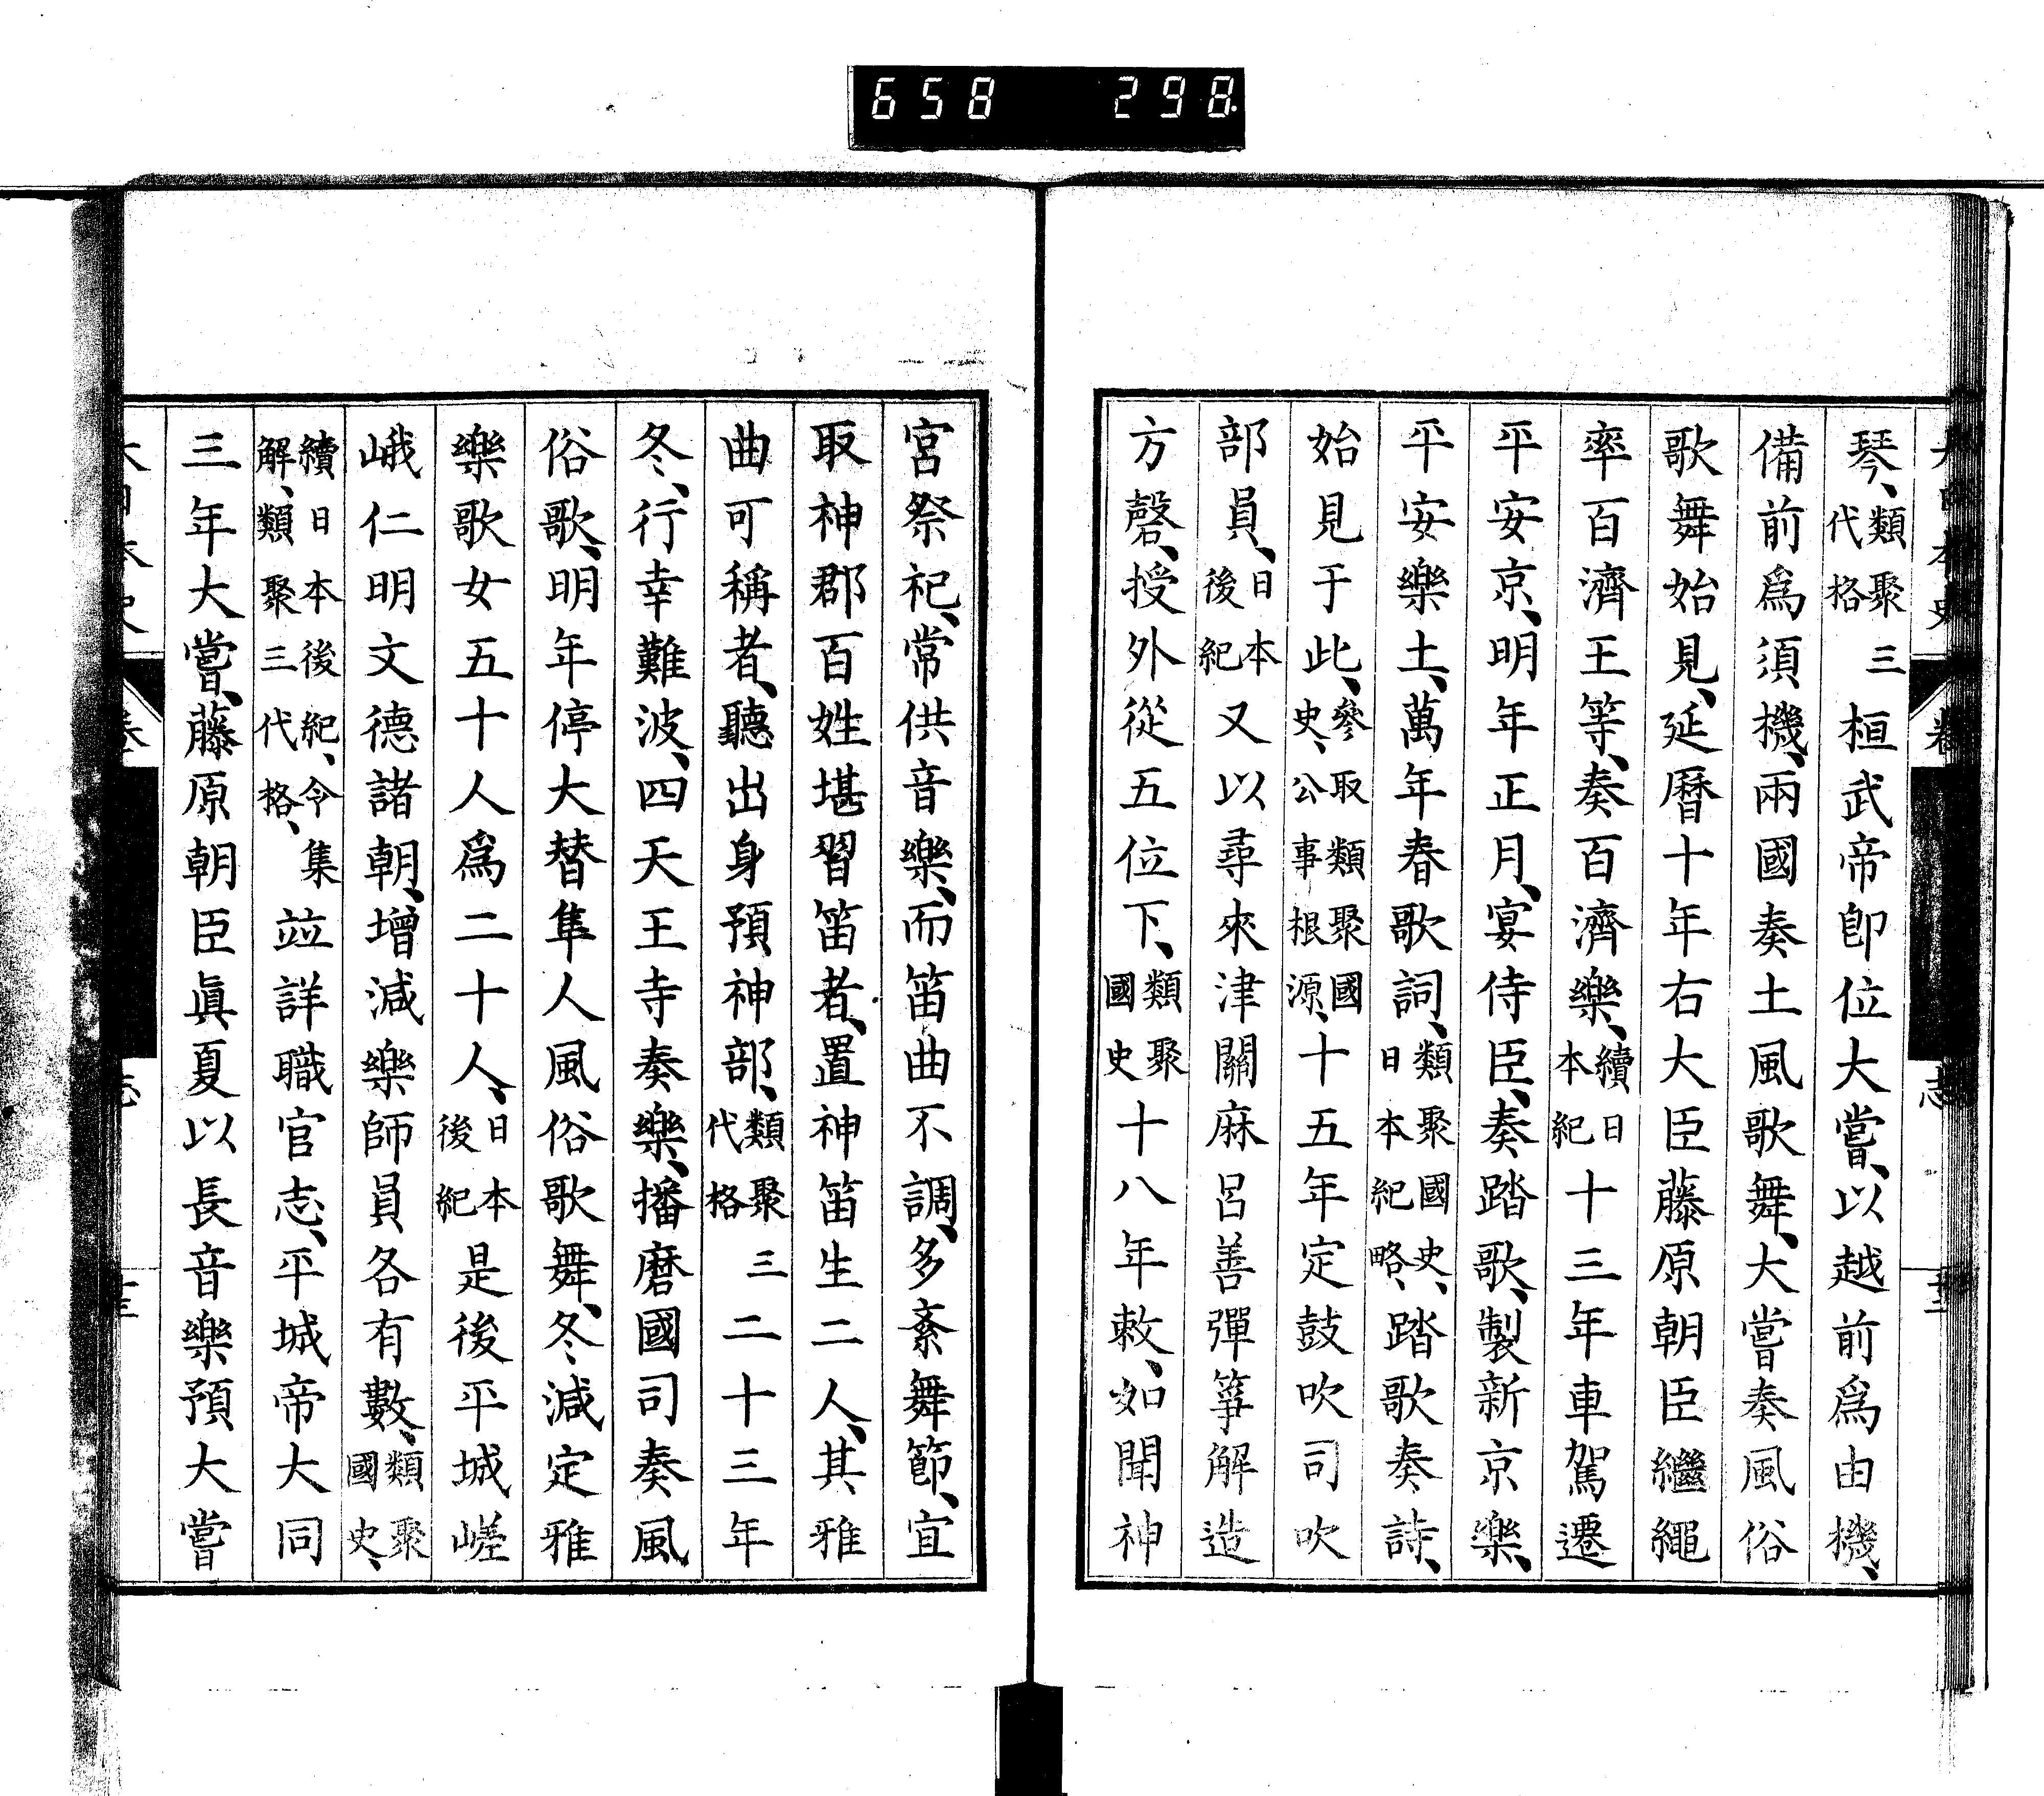 658 298
琴、類聚三代格桓武帝卽位大嘗、以越前爲由機、
備前爲須機、兩國奏土風歌舞、大嘗奏風俗
歌舞始見、延曆十年右大臣藤原朝臣繼繩
率百濟王等、奏百濟樂、續日本紀十三年車駕遷
平安京、明年正月、宴侍臣、奏踏歌、製新京樂、
平安樂土、萬年春歌詞、類聚國史、日本紀略、踏歌奏詩、
始見于此、參取類聚國史、公事根源、十五年定鼓吹司吹
部員、日本後紀又以尋來津關麻呂善彈箏解造
方磬、授外從五位下、類聚國史十八年敕、如聞神
宮祭祀、常供音樂、而笛曲不調、多紊舞節、宜
取神郡百姓堪習笛者、置神笛生二人、其雅
曲可稱者、聽出身預神部、類聚三代格二十三年
冬、行幸難波、四天王寺奏樂、播磨國司奏風
俗歌、明年停大替隼人風俗歌舞、冬減定雅
樂歌女五十人爲二十人、日本後紀是後平城嵯
峨仁明文德諸朝、增減樂師員各有數、類聚國史、
續日本後紀、令集解、類聚三代格、竝詳職官志、平城帝大同
三年大嘗、藤原朝臣眞夏以長音樂預大嘗